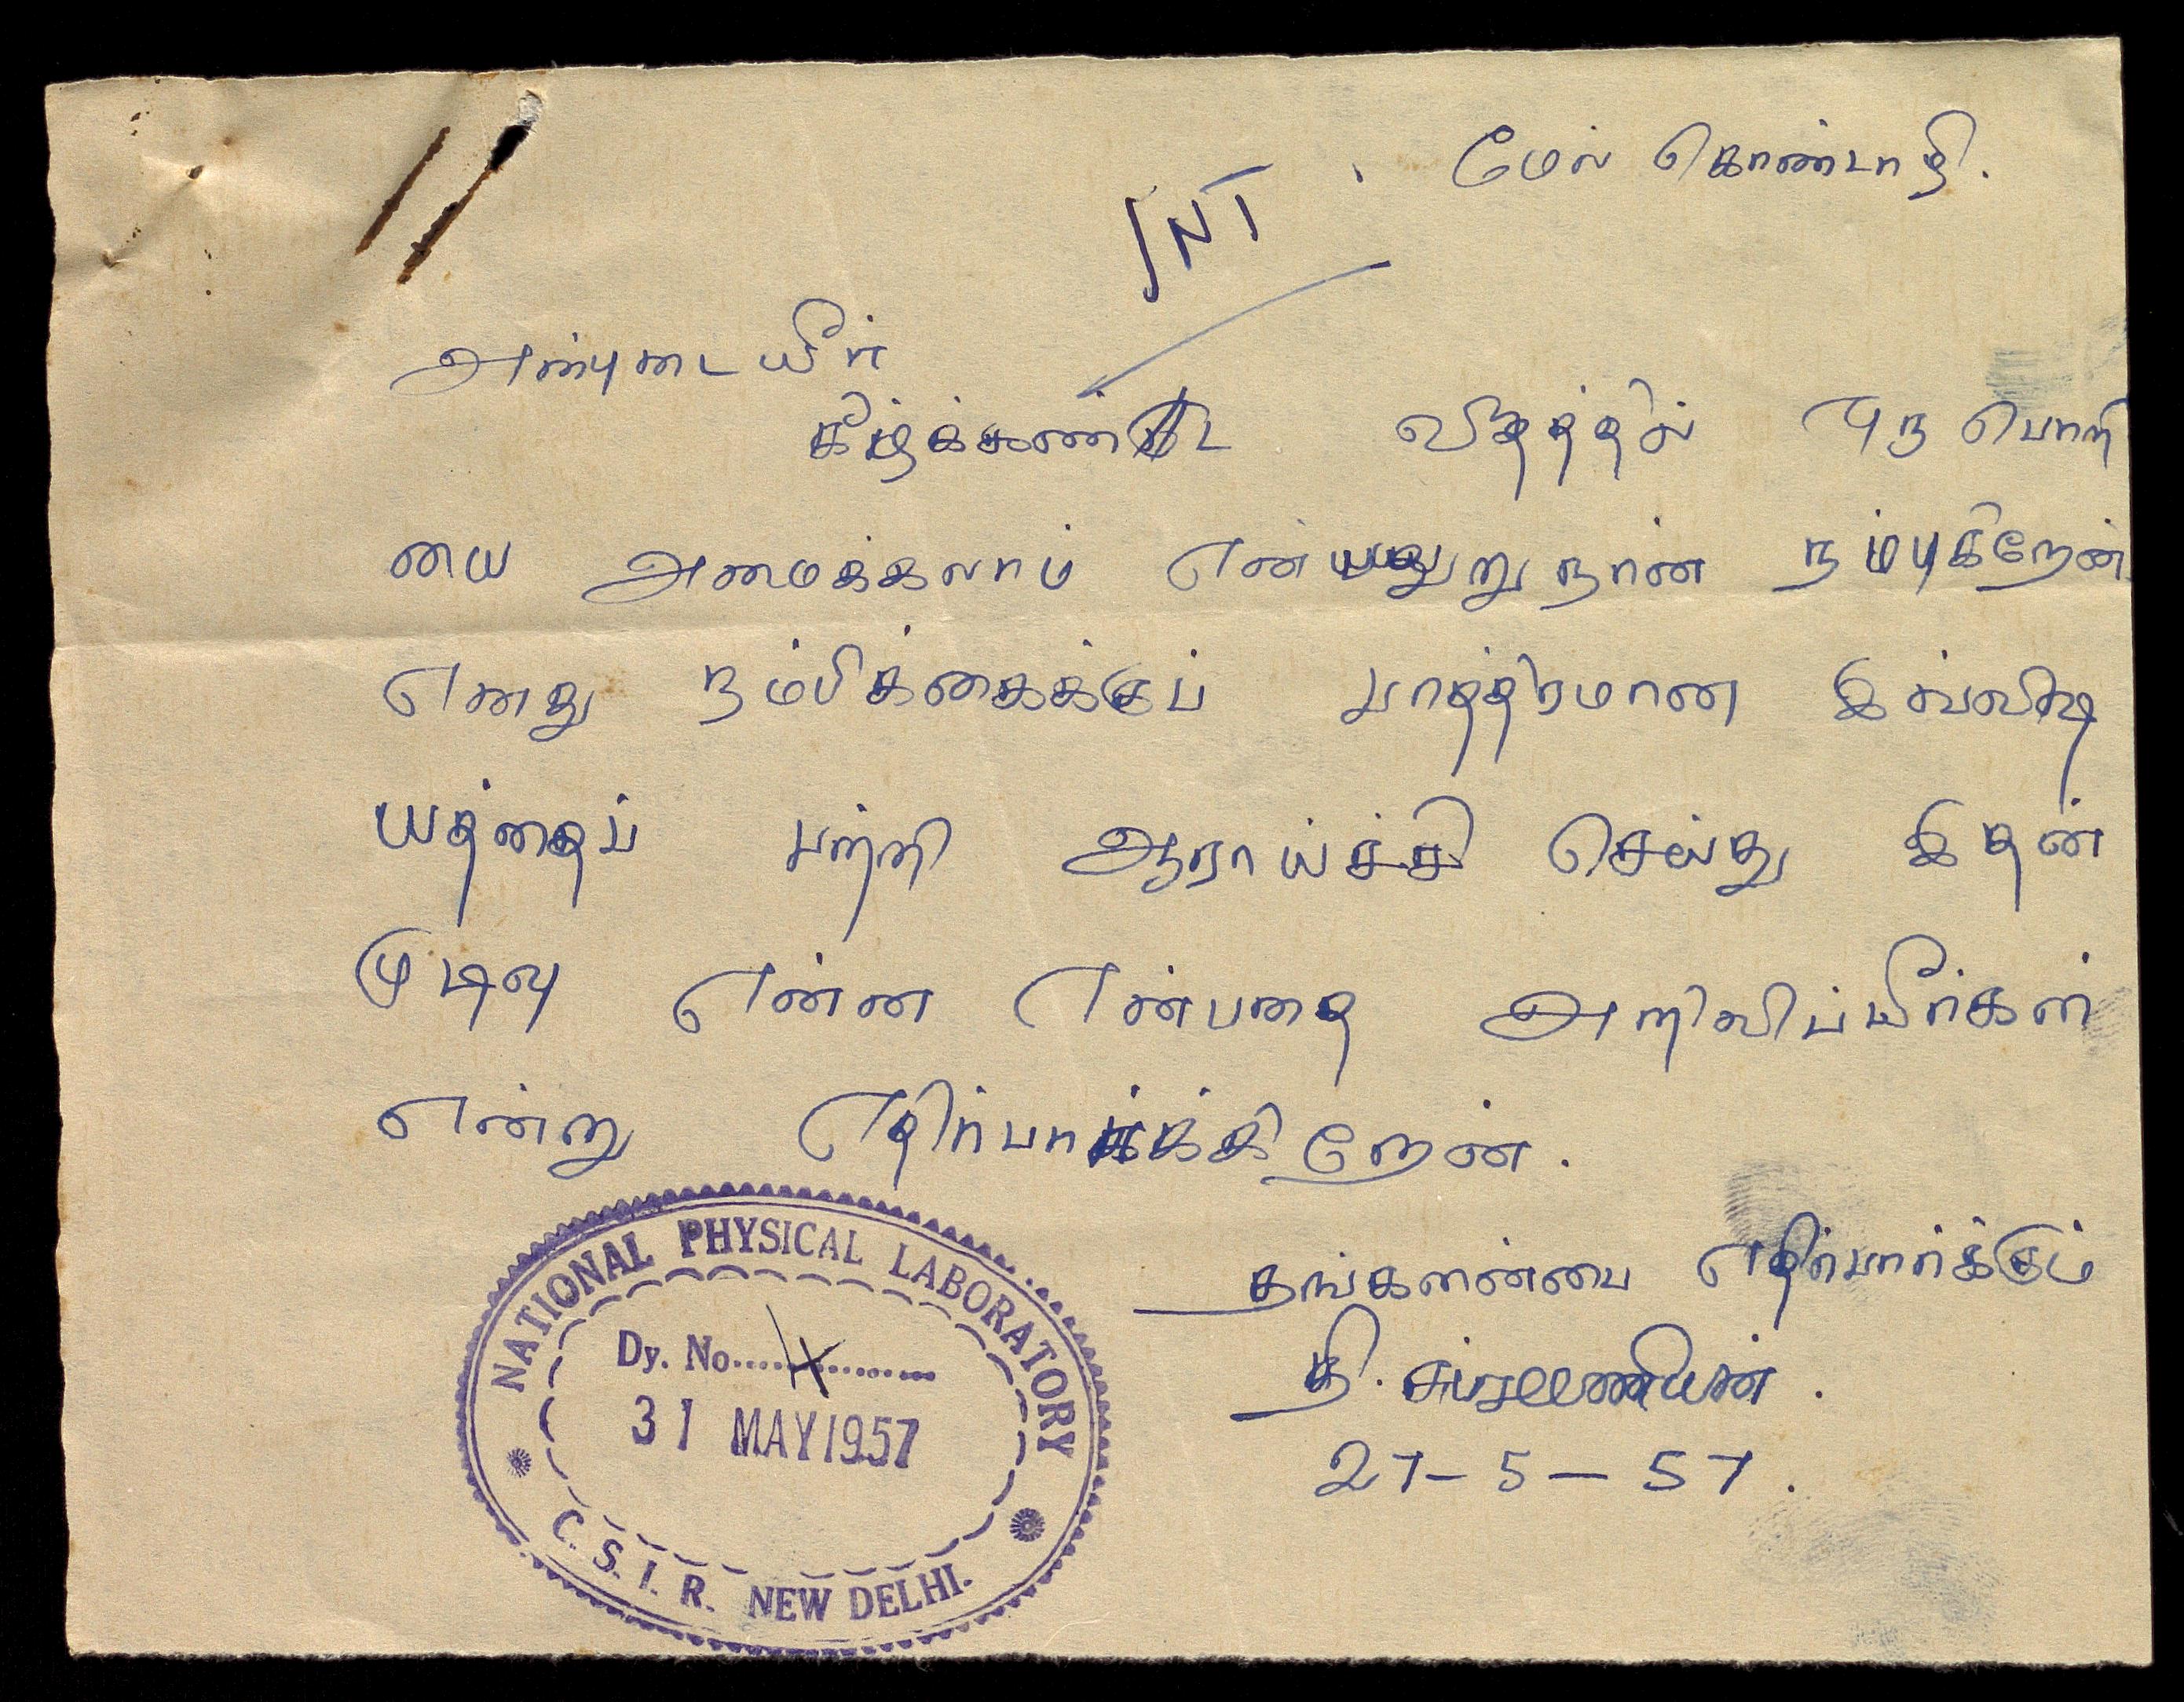 மேல் கொண்டாழி.
INT
அன்புடையீர்
கீழ்க்கண்ட விதத்தில் ஒரு பொறி
யை அமைக்கலாம் நான் நம்புகிறேன்.
எனது நம்பிக்கைக்குப் பாத்திரமான இவ்விஷ
யத்தைப் பற்றி ஆராய்ச்சி செய்து இதன்
முடிவு என்ன என்பதை அறிவிப்பீர்கள்
என்று எதிர்பார்க்கிறேன்.
தங்களன்பை எதிர்பார்க்கும்
தி. சுப்ரமணியன்.
27-5-57.
NATIONAL PHYSICAL LABORATORY
Dy. No...............
31 MAY 1957
C. S. I. R. NEW DELHI.